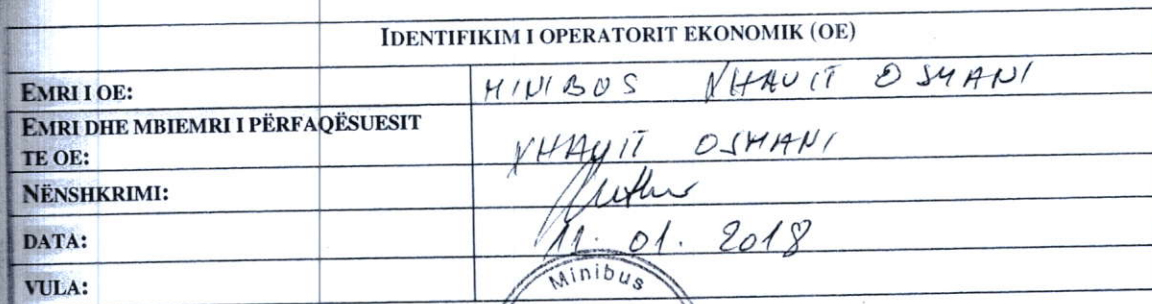 IDENTIFIKIM I OPERATORIT EKONOMIK (OE)
EMRI I OE: MINIBUS XHAVIT OSMANI
EMRI DHE MBIEMRI I PËRFAQËSUESIT
TE OE: XHAVIT OSMANI
NËNSHKRIMI:
DATA: 11. 01. 2018
VULA: Minibus